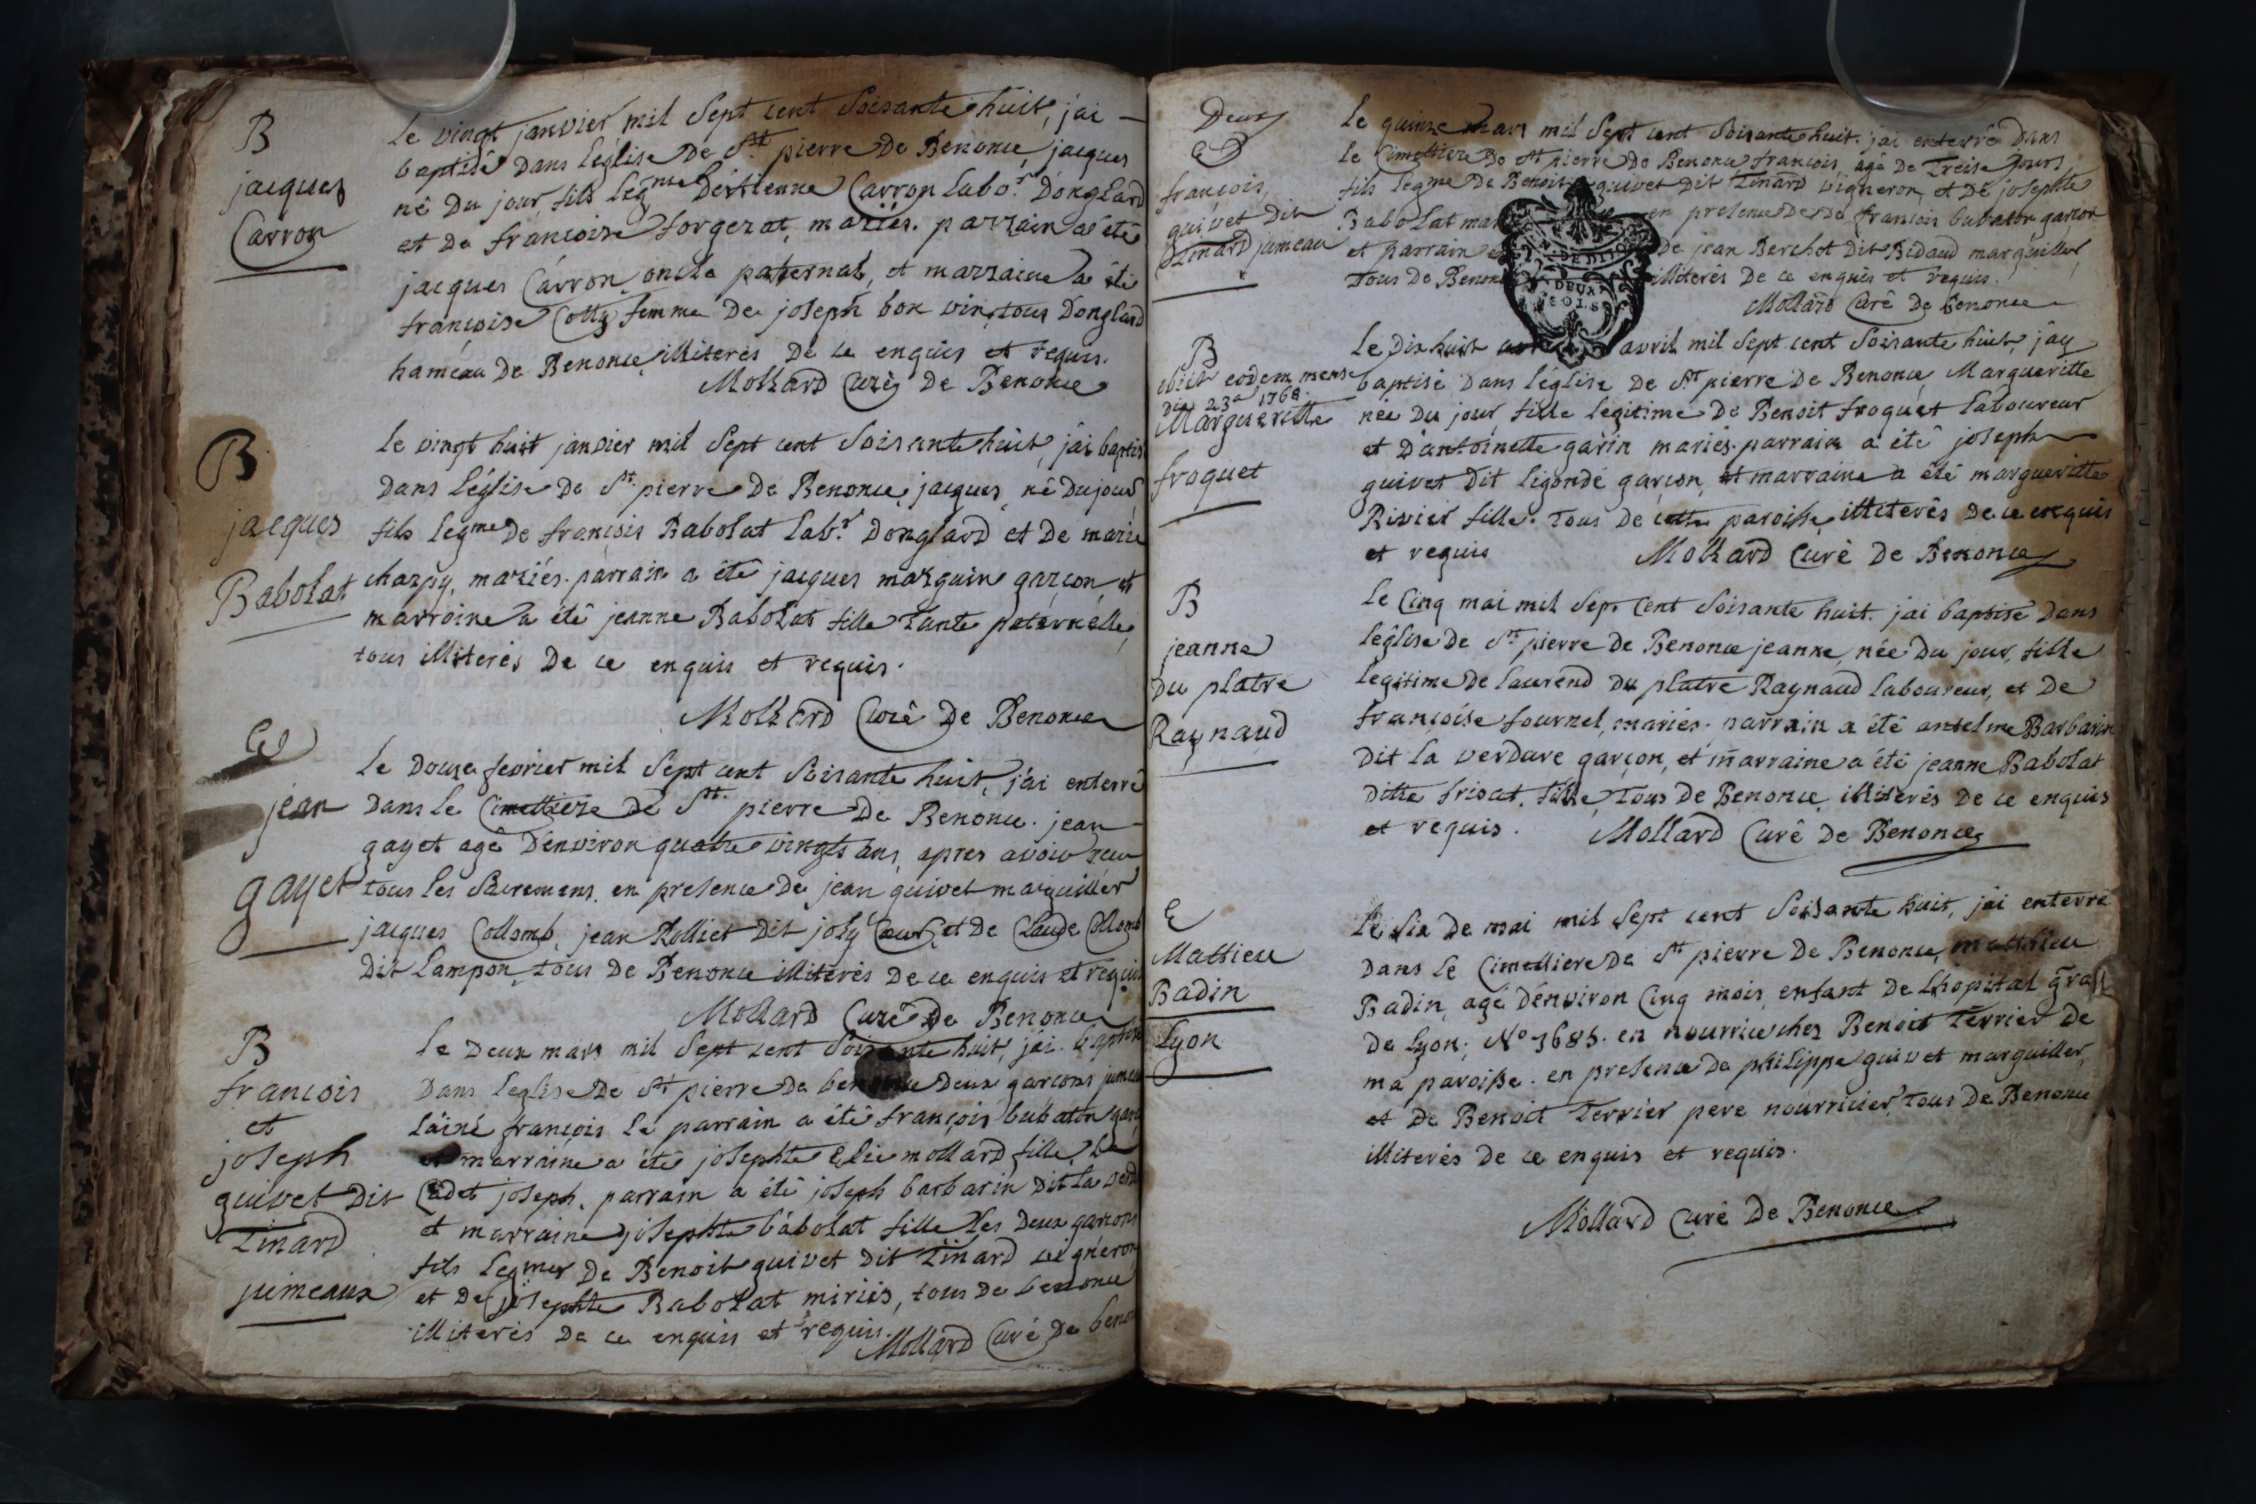 B
jacques
Carron
le vingt janvier mil sept cent soisante huit, jai
baptisé dans léglise de St pierre de Benonce, jacques
né du jour, fils legme déstienne Carron labor. donglard
et de francoise forgerat, mariés. parrain a été
jacques Carron, oncle paternal, et marraine a été
françoise Colly femme de joseph bon vin, tous donglard
haméau de Benonce, illiterés de ce enquis et requis.
Mollard Curé de Benonce
B
jacques
Babolat
le vingt huit janvier mil sept cent soisante huit, jai baptisé
dans léglise de St. pierre de Benonce, jacques, né du jour
fils legme de françois Babolat labr. donglard et de marie
charpy, mariés. parrain a été jacques marguin garçon, et
marraine a été jeanne Babolat fille tante paternélle,
tous illiterés de ce enquis et requis.
Mollard Curé de Benonce
E
jean
gayet
le douze fevrier mil sept cent soisante huit, jai enterré
dans le Cimettiere de St. pierre de Benonce. jean
gayet agé dénviron quatre vingts ans, apres avoir recu
tous les sacremens. en presence de jean guivet marguillér
jacques Collomb, jean Rolliet dit joly Cœur, et de Claude Collomb
dit Lampon, tous de Benonce illiterés de ce enquis et requis
Mollard Curé de Benonce
B
francois
et
joseph
guivet dit
Tinard
jumeaux
le deux mars mil sept cent soisante huit, jai baptisé
dans leglise de St pierre de benonce deux garcons jumeaux
láiné françois le parrain a été françois bubaton garçon
et marraine a été josephte Elie mollard fille, le
Cadet joseph. parrain a été joseph barbarin dit la verd
et marraine josephte bábolat fille les deux garcons
fils legmes de Benoit guivet dit Tinard vigneron
et de josephte Babolat miriés, tous de benonce
illiterés de ce enquis et requis.
Mollard Curé de benonce
Deux
E
francois,
guivet dit
Tinard jumeau
le quinze mars mil sept cent soisante huit. jai enterré dans
le Cimettiere de St pierre de Benonce francois, agé de treise jours
fils legme de Benoit guivet dit Tinard vigneron, et de josephte
Babolat en presence de francois bubaton garçon
et parrain de jean Berchot dit Bidaud marguiller
tous de Benonce illiterés de ce enquis et requis.
Mollard Curé de Benonce
B
obiit eodem mense
die 23a 1768.
Margueritte
froquet
Le dix huit avril mil sept cent soisante huit, jay
baptisé dans léglise de St pierre de Benonce, Margueritte
née du jour, fille legitime de Benoit froquét laboureur
et dantoinette garin mariés. parrain a été joseph
guivet dit ligondé garçon, et marraine a été margueritte
Rivier fille. tous de cette paroisse illiterés de ce enquis
et requis
Mollard Curé de Benonce
B
jeanne
Du platre
Raynaud
le Cinq mai mil sept cent soisante huit. jai baptisé dans
léglise de St. pierre de Benonce jeanne, née du jour, fille
legitime de laurend du platre Raynaud laboureur, et de
françoise fournel, mariés. parrain a été antelme Barbarin
dit la verdure garçon, et marraine a été jeanne Babolat
ditte frisat, fille, tous de Benonce, illiterés de ce enquis
et requis.
Mollard Curé de Benonce
E
Mattieu
Badin
Lyon
Le six de mai mil sept cent soisante huit, jai enterré
dans le Cimettiere de St pierre de Benonce, matthieu
Badin, agé dénviron Cinq mois, enfant de Lhopital gral
de lyon; No 3685. en nourrice chez Benoit Terrier de
ma paroisse. en presence de philippe guivet marguiller,
et de Benoit Terrier pere nourricier, tous de Benonce
illiterés de ce enquis et requis.
Mollard Curé de Benonce